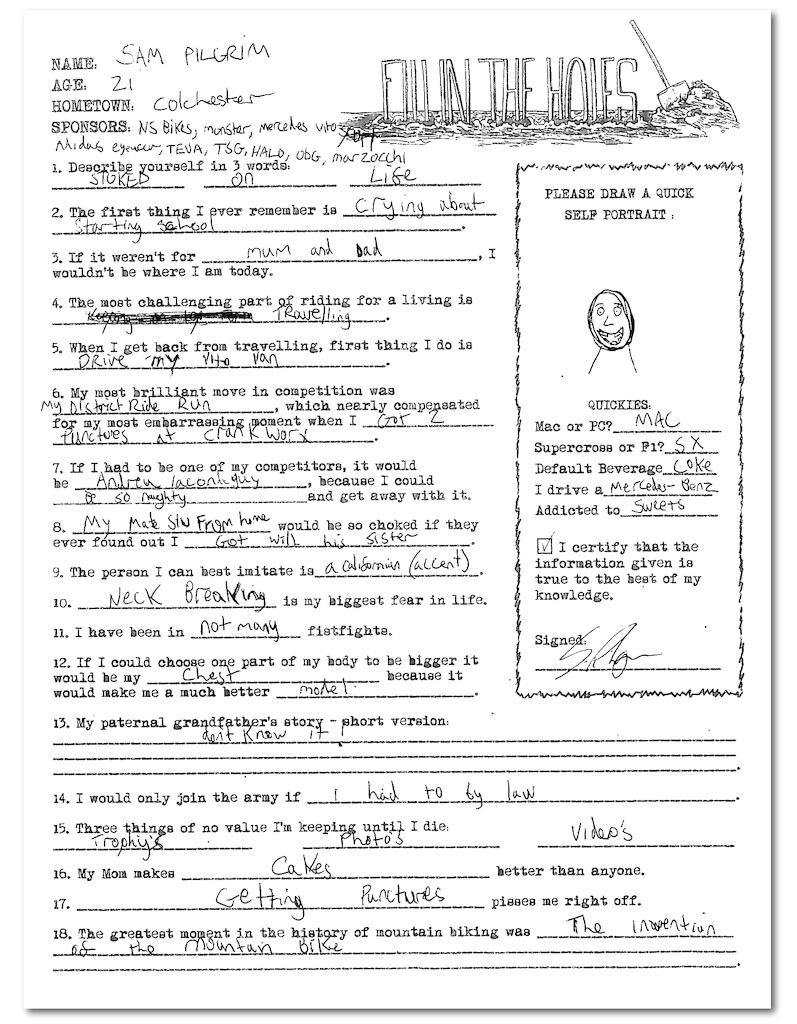 NAME: SAM PILGRIM
FILL IN THE HOLES
AGE: 21
HOMETOWN: Colchester
SPONSORS: NS Bikes, monster, mercedes vito
Midas eyewear, TEVA, TSG, HALO, ODG, marzocchi
1. Describe yourself in 3 words:
STOKED on Life
2. The first thing I ever remember is Crying about
starting school.
3. If it weren't for mum and dad, I
wouldn't be where I am today.
4. The most challenging part of riding for a living is
Travelling.
5. When I get back from travelling, first thing I do is
DRive my Vito van.
6. My most brilliant move in competition was
My District Ride Run, which nearly compensated
for my most embarrassing moment when I Got 2
Punctures at CrankWorx.
7. If I had to be one of my competitors, it would
be Andreu lacondeguy, because I could
Be so naughty and get away with it.
8. My Mate Stu From home would be so choked if they
ever found out I Got with his sister.
9. The person I can best imitate is a californian (accent).
10. Neck Breaking is my biggest fear in life.
11. I have been in not many fistfights.
12. If I could choose one part of my body to be bigger it
would be my Chest because it
would make me a much better model.
PLEASE DRAW A QUICK
SELF PORTRAIT:
QUICKIES:
Mac or PC? MAC
Supercross or F1? SX
Default Beverage Coke
I drive a Mercedes-Benz
Addicted to Sweets
I certify that the
information given is
true to the best of my
knowledge.
Signed:
13. My paternal grandfather's story - short version:
don't Know it.
14. I would only join the army if i had to by law.
15. Three things of no value I'm keeping until I die:
Trophy's Photo's Video's
16. My Mom makes Cakes better than anyone.
17. Getting Punctures pisses me right off.
18. The greatest moment in the history of mountain biking was The invention
of the Mountain Bike.